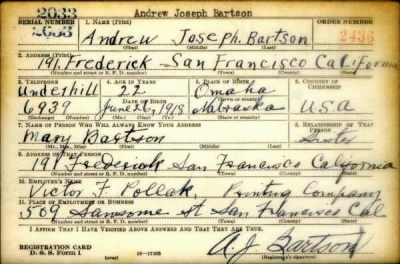 2033
Andrew Joseph Bartson
2033
1. NAME (Print)
ORDER NO.
Andrew Joseph Bartson
2436
(First) (Middle) (Last)
2. ADDRESS (Print)
191 Frederick San Francisco California
(Number and street or R. F. D. number) (Town) (County) (State)
3. TELEPHONE
4. AGE IN YEARS
5. PLACE OF BIRTH
6. COUNTRY OF CITIZENSHIP
Underhill
22
Omaha
DATE OF BIRTH
6939
June 26, 1918
Nebraska
U.S.A
(Exchange) (Number)
(Mo.) (Day) (Yr.)
(State or country)
7. NAME OF PERSON WHO WILL ALWAYS KNOW YOUR ADDRESS
8. RELATIONSHIP OF THAT PERSON
Mary Bartson
Sister
(Mr., Mrs., Miss) (First) (Middle) (Last)
9. ADDRESS OF THAT PERSON
191 Frederick San Francisco California
(Number and street or R. F. D. number) (Town) (County) (State)
10. EMPLOYER'S NAME
Victor F. Pollak, Printing Company
11. PLACE OF EMPLOYMENT OR BUSINESS
569 Sansome st San Francisco Cal
(Number and street or R. F. D. number) (Town) (County) (State)
I AFFIRM THAT I HAVE VERIFIED ABOVE ANSWERS AND THAT THEY ARE TRUE.
REGISTRATION CARD
D. S. S. Form 1
A. J. Bartson
(Registrant's signature)